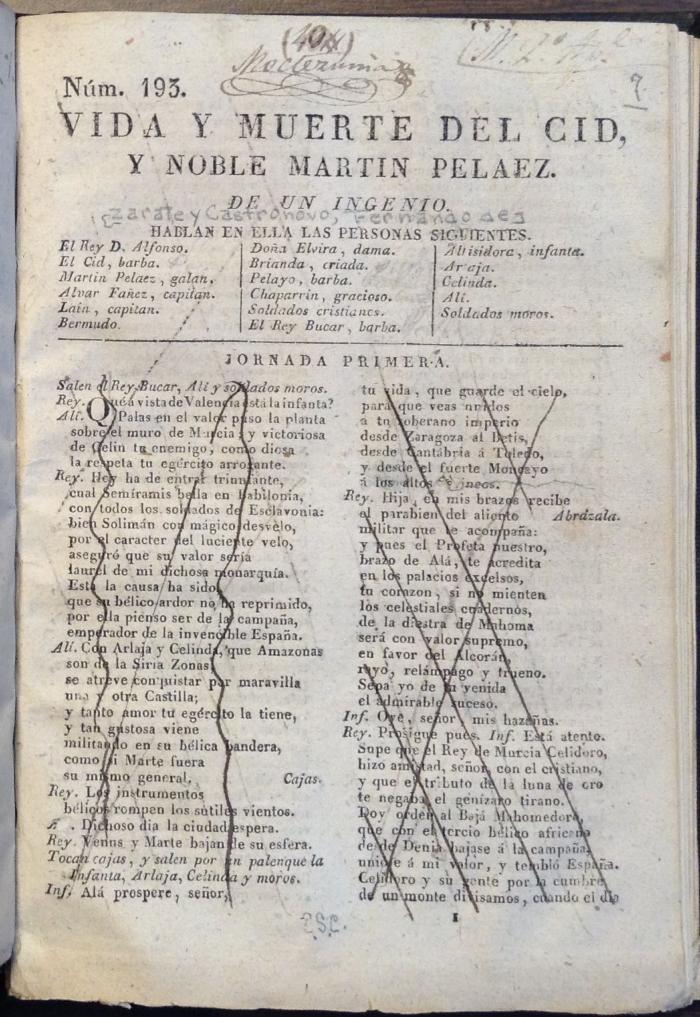 (491)
Moctezuma
Núm. 193.
VIDA Y MUERTE DEL CID,
Y NOBLE MARTIN PELAEZ.
DE UN INGENIO.
[Zarate y Castronovo, Fernando de]
HABLAN EN ELLA LAS PERSONAS SIGUIENTES.
El Rey D. Alfonso.
El Cid, barba.
Martin Pelaez, galan.
Alvar Fañez, capitan.
Lain, capitan.
Bermudo.
Doña Elvira, dama.
Brianda, criada.
Pelayo, barba.
Chaparrin, gracioso.
Soldados cristianos.
El Rey Bucar, barba.
Altisidora, infanta.
Arlaja.
Celinda.
Ali.
Soldados moros.
JORNADA PRIMERA.
Salen el Rey Bucar, Ali y soldados moros.
Rey. Qué á vista de Valencia está la infanta?
Ali. Palas en el valor puso la planta
sobre el muro de Murcia; y victoriosa
de Celin tu enemigo, como diosa
la respeta tu egército arrogante.
Rey. Hoy ha de entrar triunfante,
cual Semíramis bella en Babilonia,
con todos los soldados de Esclavonia:
bien Solimán con mágico desvelo,
por el caracter del luciente velo,
aseguró que su valor sería
laurel de mi dichosa monarquía.
Esta la causa ha sido
que su bélico ardor no ha reprimido,
por ella pienso ser de la campaña,
emperador de la invencible España.
Ali. Con Arlaja y Celinda, que Amazonas
son de la Siria Zonas,
se atreve conquistar por maravilla
una y otra Castilla;
y tanto amor tu egército la tiene,
y tan gustosa viene
militando en su bélica bandera,
como si Marte fuera
su mismo general. Cajas.
Rey. Los instrumentos
bélicos rompen los sutiles vientos.
A . Dichoso dia la ciudad espera.
Rey. Venus y Marte bajan de su esfera.
Tocan cajas, y salen por un palenque la
Infanta, Arlaja, Celinda y moros.
Inf. Alá prospere, señor,
tu vida, que guarde el cielo,
para que veas unidos
a tu soberano imperio
desde Zaragoza al Betis,
desde Cantábria á Toledo,
y desde el fuerte Moncayo
á los altos
Rey. Hija, en mis brazos recibe
el parabien del aliento Abrázala.
militar que te acompaña:
y pues el Profeta nuestro,
brazo de Alá, te acredita
en los palacios excelsos,
tu corazon, si no mienten
los celestiales cuadernos,
de la diestra de Mahoma
será con valor supremo,
en favor del Alcorán,
rayo, relámpago y trueno.
Sepa yo de tu venida
el admirable suceso.
Inf. Oye, señor, mis hazañas.
Rey. Prosigue pues. Inf. Está atento.
Supe que el Rey de Murcia Celidoro,
hizo amistad, señor, con el cristiano,
y que el tributo de la luna de oro
te negaba el genízaro tirano.
Doy orden al Bajá Mahomedoro,
que con el tercio bélico africano
desde Denia bajase á la campaña,
unióle á mi valor, y tembló España.
Celidoro y su gente por la cumbre
de un monte divisamos, cuando el dia
1